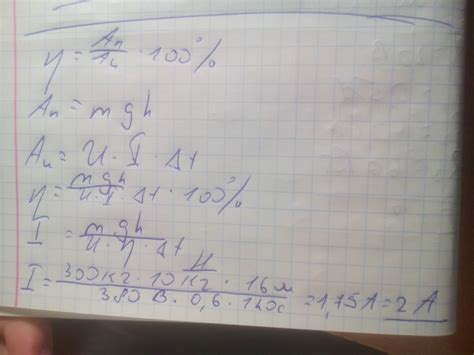 η = Aп/Aи · 100%
Aп = mgh
Aи = U · I · Δt
η = mgh/U·I·Δt · 100%
I = mgh/U · η · Δt
I = 300кг · 10Н/кг · 16м/380 В · 0,6 · 120с = 1,75А = 2 А